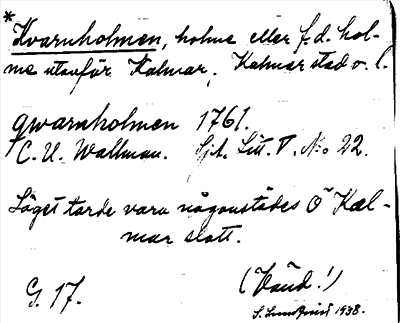 * Kvarnholmen, holme eller f.d. hol-
me utanför Kalmar, Kalmar stad o. l.
Qwarnholmen 1761.
C. U. Wallman. Sjk. Litt. V. No 22.
Läget torde vara någonstädes Ö Kal-
mar slott.
G. 17. (Vänd!)
S. Lundquist 1938.